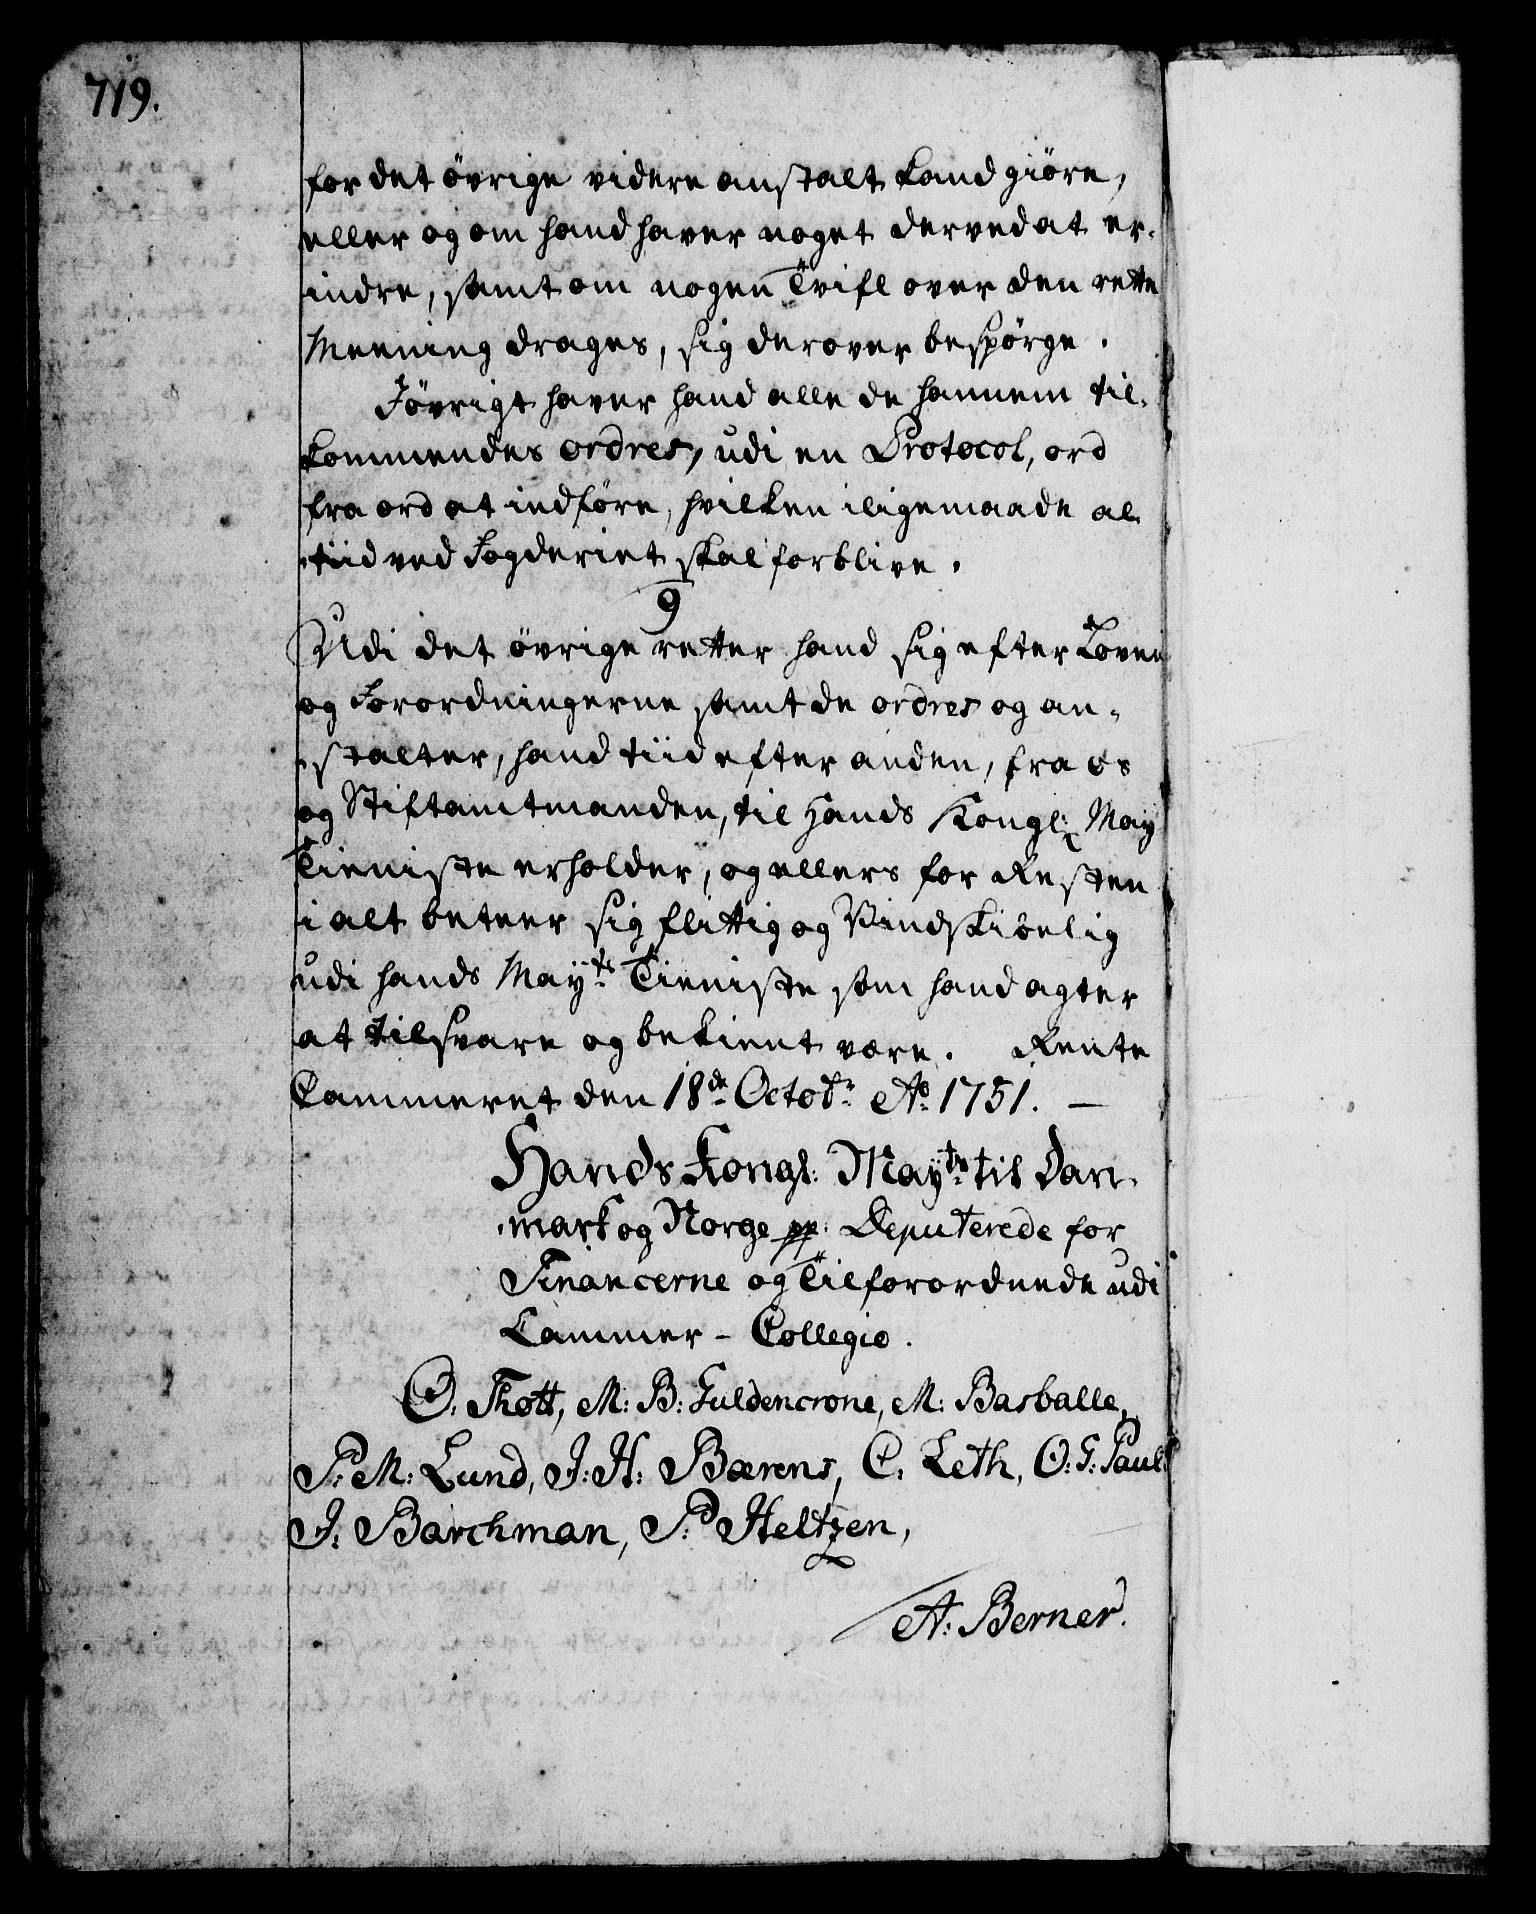 719.
for det övrige videre anstalt kand giöre,
eller og om hand haver noget derved at er-
indre, samt om nogen Tvifl over den rette
Meening drages, sig derover bespörge.
Iövrigt haver hand alle de hannem til-
kommendes ordres, udi en Protocol, ord
fra ord at indföre, hvilken iligemaade al-
tiid ved Fogderiet skal forblive.
9
Udi det övrige retter hand sig efter Loven
og Forordningerne samt de ordres og an-
stalter, hand tiid efter anden, fra os
og Stiftamtmanden, til Hands Kongl: May
Tieniste erholder, og ellers for Resten
i alt beteer sig flittig og Vindskibelig
udi hands Mayts Tieniste som hand agter
at tilsvare og bekient være. Rente
Cammeret den 18de Octobr Ao 1751. —
Hands Kongl: Mayts til Dan-
mark og Norge pp: Deputerede for
Financerne og Tilforordnede udi
Cammer-Collegio.
O. Thott, M: B: Guldencrone, M: Basballe,
P: M: Lund, J: H: Bærens, C. Leth, O: G: Pauli
J: Barchman, P: Heltzen,
A: Berner.